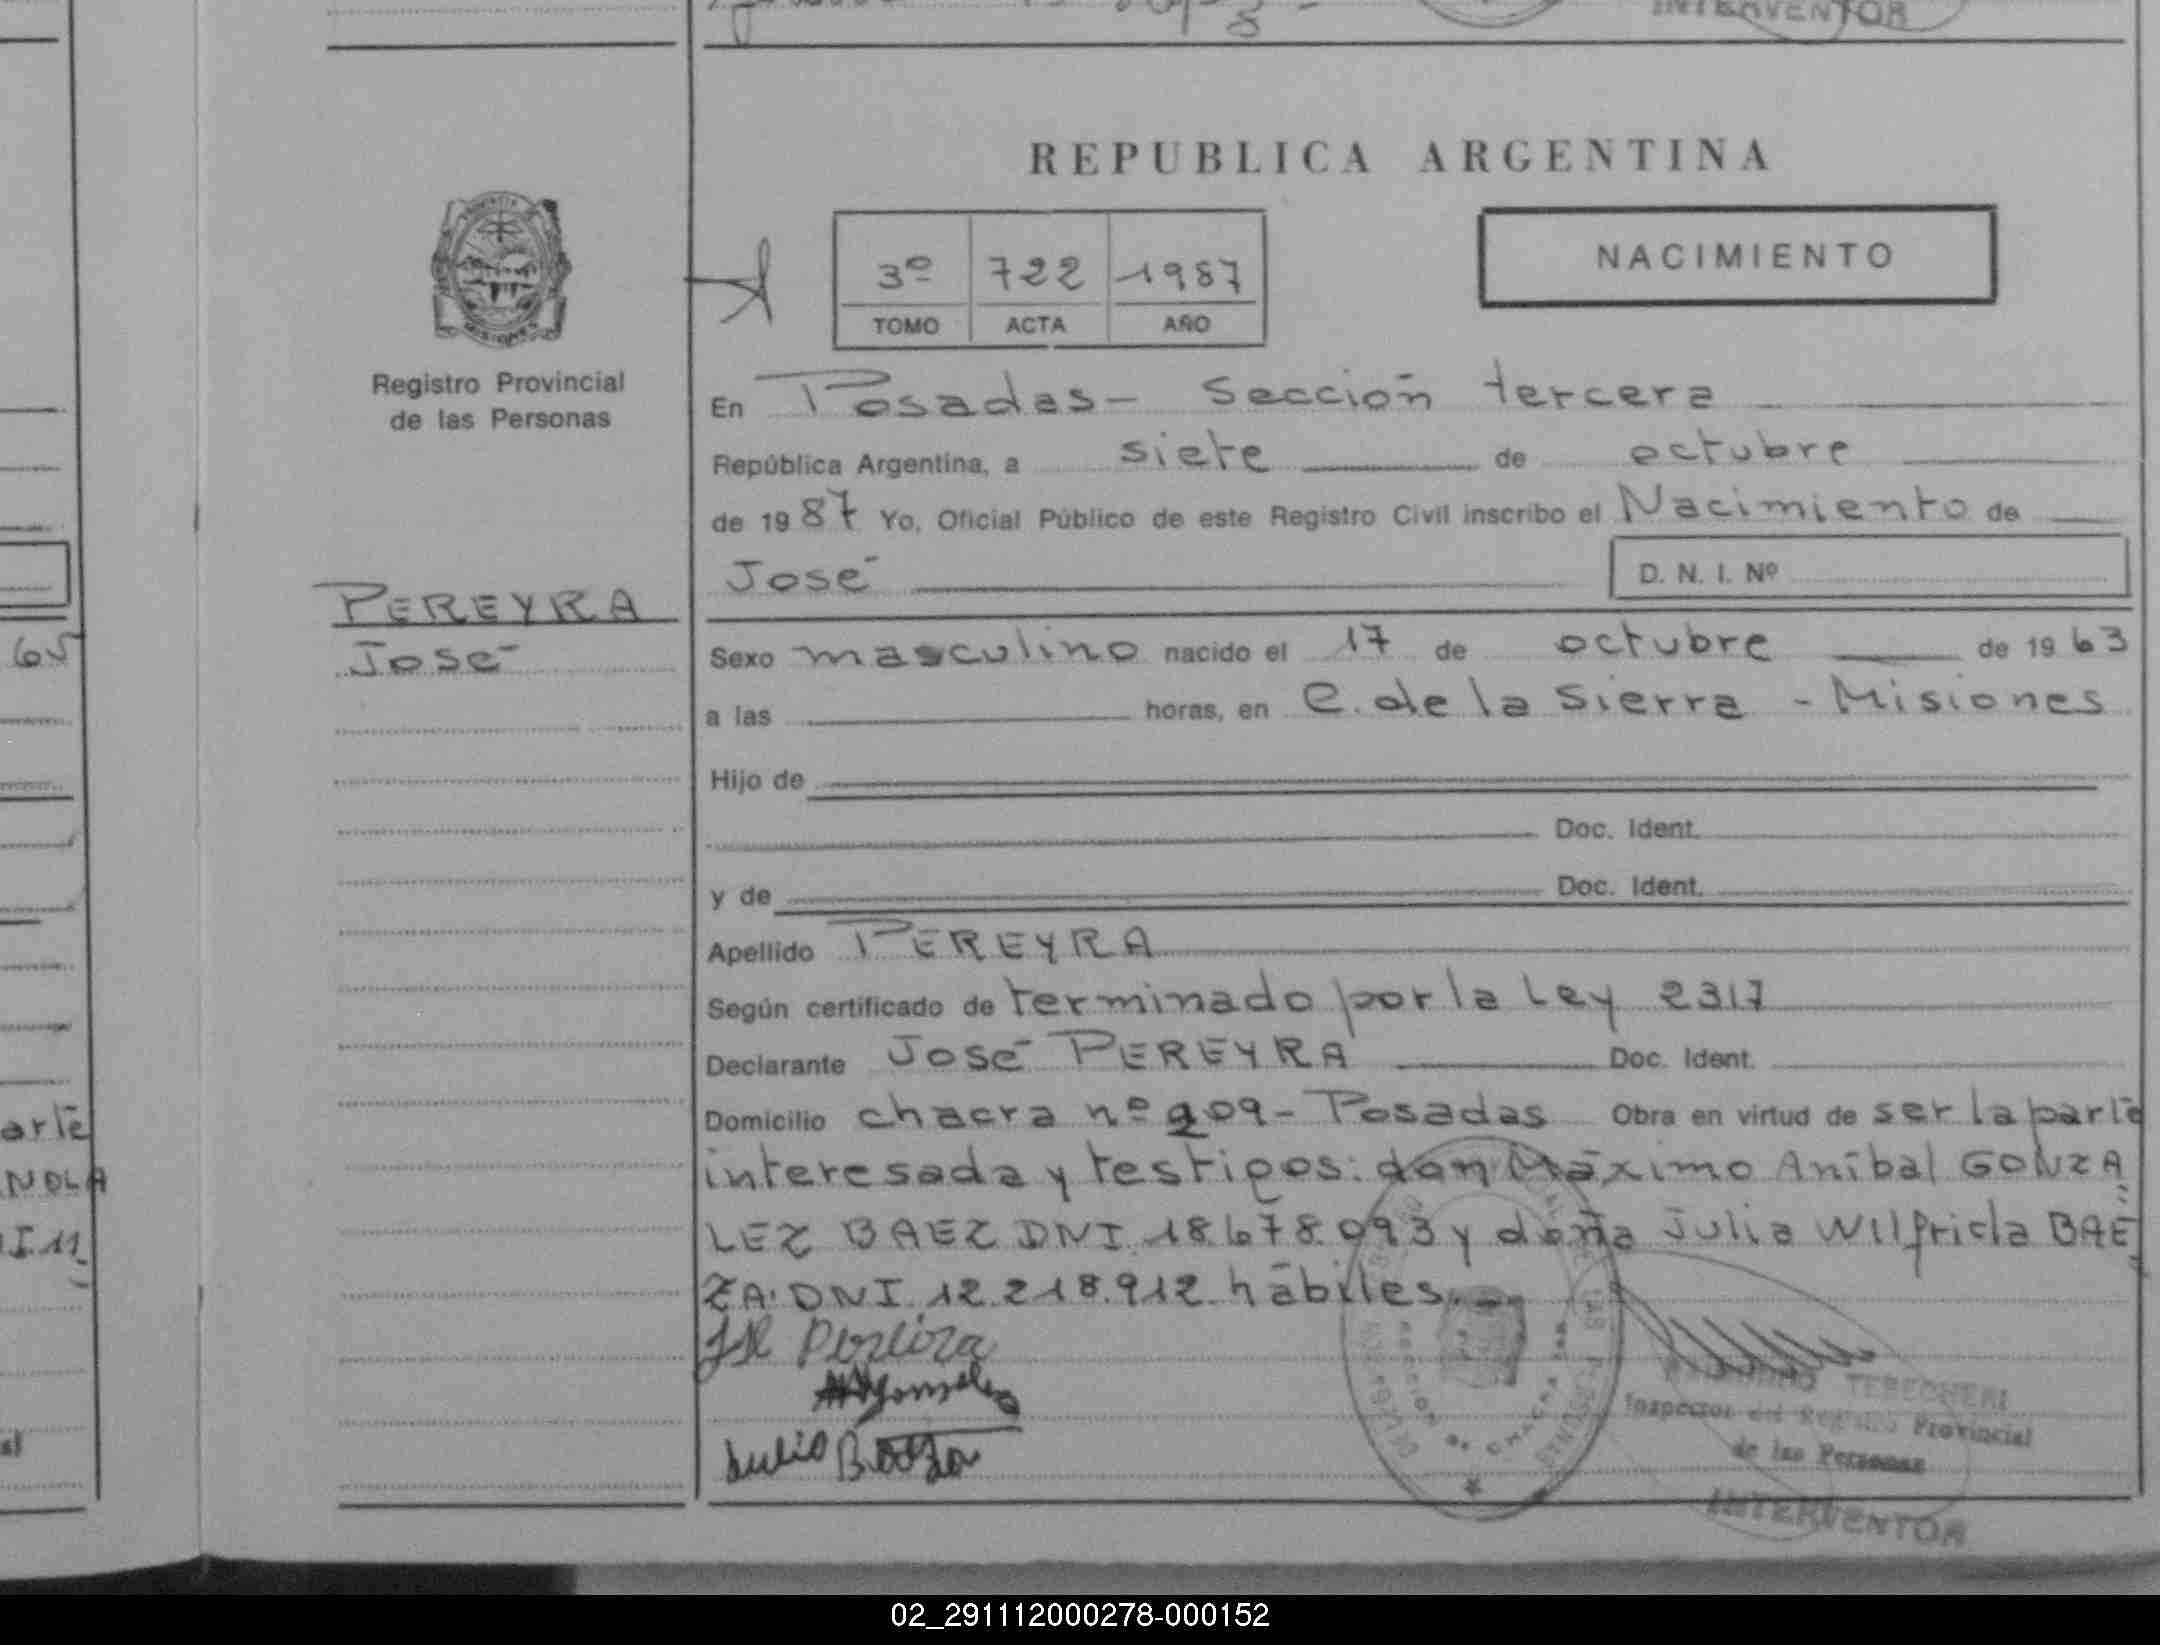 INTERVENTOR
REPUBLICA ARGENTINA
3º 722 1987
TOMO ACTA AÑO
NACIMIENTO
Registro Provincial
de las Personas
En Posadas- Sección tercera
República Argentina, a siete de octubre
de 1987 Yo, Oficial Público de este Registro Civil inscribo el Nacimiento de
José D. N. I. Nº
PEREYRA
José
Sexo masculino nacido el 17 de octubre de 1963
a las horas, en C. de la Sierra - Misiones
Hijo de
Doc. Ident.
y de Doc. Ident.
Apellido PEREYRA
Según certificado de terminado por la Ley 2317
Declarante José PEREYRA Doc. Ident.
Domicilio chacra nº 209- Posadas Obra en virtud de ser la parte
interesada y testigos: don Máximo Aníbal GONZA
LEZ BAEZ DNI. 18.678.093 y doña Julia Wilfrida BAE
ZA. DNI. 12.218.912. hábiles.
Pereira
Gonzalez
Julia Baeza
TERECHERI
Inspector del Registro Provincial
de las Personas
INTERVENTOR
65
arte
NOLA
I.11
02_291112000278-000152